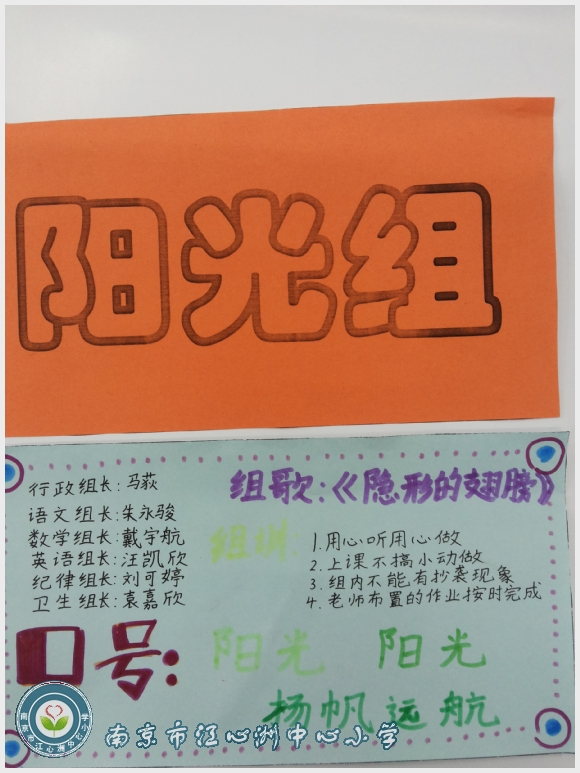 阳光组
行政组长:马荻
语文组长:朱永骏
数学组长:戴宇航
英语组长:汪凯欣
纪律组长:刘可婷
卫生组长:袁嘉欣
组歌:《隐形的翅膀》
组训:
1.用心听用心做
2.上课不搞小动做
3.组内不能有抄袭现象
4.老师布置的作业按时完成
口号:
阳光 阳光
扬帆远航
南京市江心洲中心小学
南京市江心洲中心小学